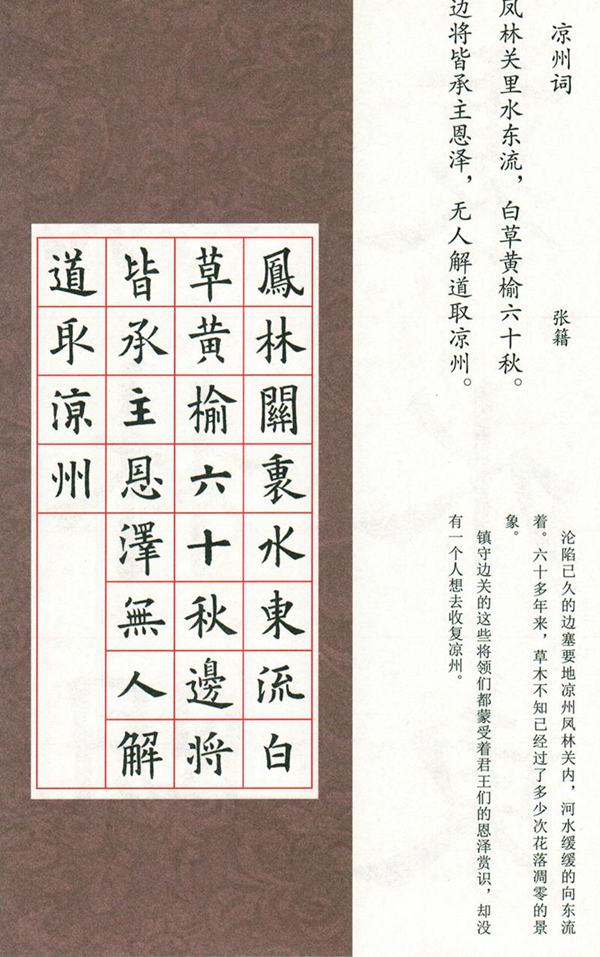 凉州词
张籍
凤林关里水东流，白草黄榆六十秋。
边将皆承主恩泽，无人解道取凉州。
沦陷已久的边塞要地凉州凤林关内，河水缓缓的向东流
着。六十多年来，草木不知已经过了多少次花落凋零的景
象。
镇守边关的这些将领们都蒙受着君王们的恩泽赏识，却没
有一个人想去收复凉州。
鳳林關裏水東流白
草黃榆六十秋邊將
皆承主恩澤無人解
道取涼州